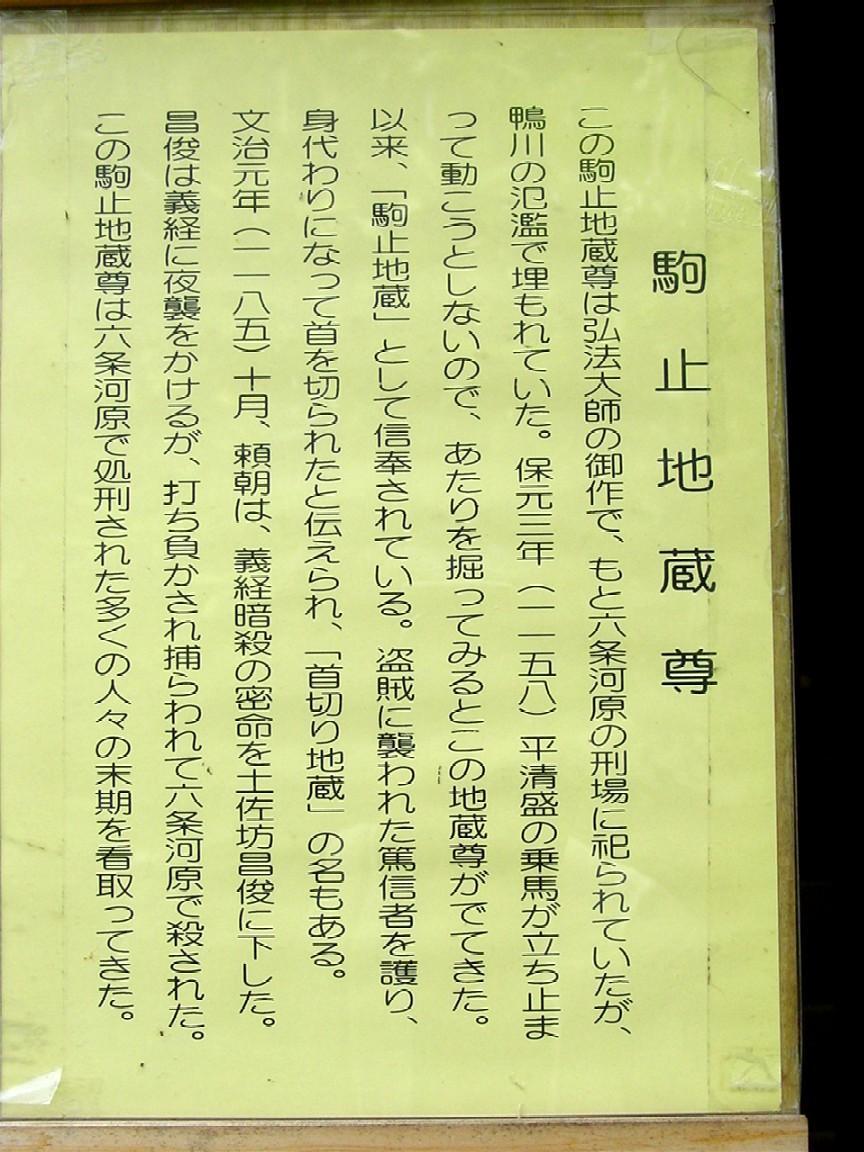 駒止地蔵尊
この駒止地蔵尊は弘法大師の御作で、もと六条河原の刑場に祀られていたが、
鴨川の氾濫で埋もれていた。保元三年（一一五八）平清盛の乗馬が立ち止ま
って動こうとしないので、あたりを掘ってみるとこの地蔵尊がでてきた。
以来、「駒止地蔵」として信奉されている。盗賊に襲われた篤信者を護り、
身代わりになって首を切られたと伝えられ、「首切り地蔵」の名もある。
文治元年（一一八五）十月、頼朝は、義経暗殺の密命を土佐坊昌俊に下した。
昌俊は義経に夜襲をかけるが、打ち負かされ捕らわれて六条河原で殺された。
この駒止地蔵尊は六条河原で処刑された多くの人々の末期を看取ってきた。